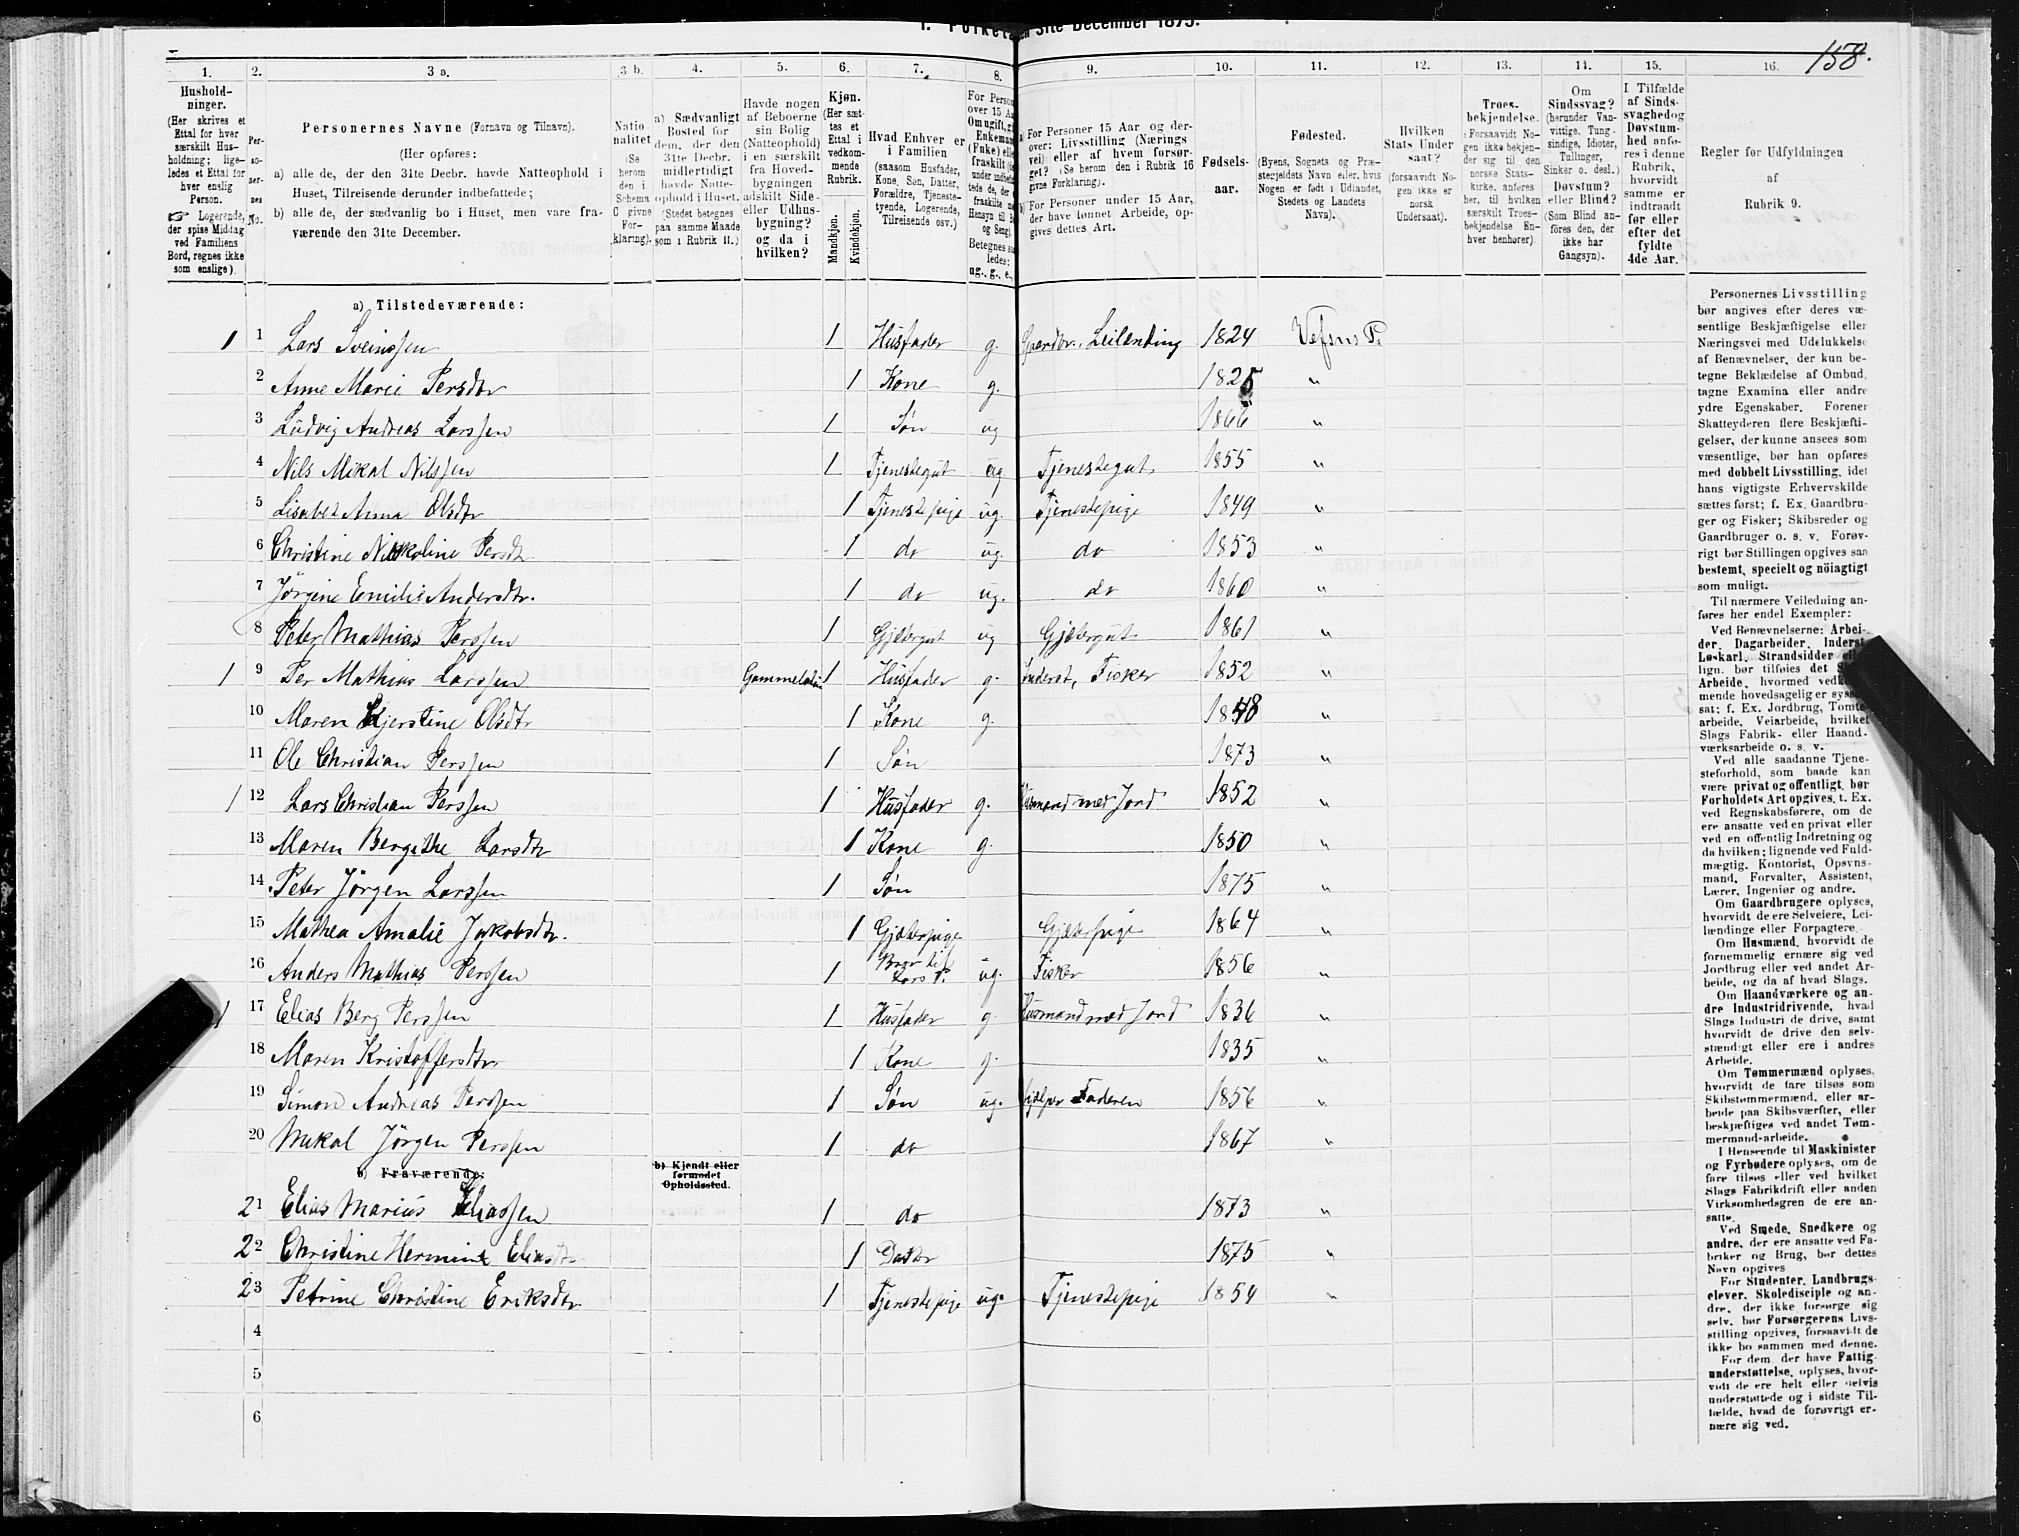 1. Folket  31te December 1875.
158.
1. 2. 3 a. 3 b. 4. 5. 6. 7. 8. 9. 10. 11. 12. 13. 14. 15. 16.
Hushold-
ninger.
(Her skrives et
Ettal for hver
særskilt Hus-
holdning; lige-
ledes et Ettal for
hver enslig
Person.
☞ Logerende,
der spise Middag
ved Familiens
Bord, regnes ikke
som enslige).
Per-
so-
ner-
nes
No.
Personernes Navne (Fornavn og Tilnavn).
(Her opføres:
a) alle de, der den 31te Decbr. havde Natteophold i
Huset, Tilreisende derunder indbefattede;
b) alle de, der sædvanlig bo i Huset, men vare fra-
værende den 31te December.
Natio
nalitet
(Se
herom
den i
Schema
C givne
For-
klaring).
a) Sædvanligt
Bosted for
dem, der den
31te Decbr.
midlertidigt
havde Natte-
ophold i Huset.
(Stedet betegnes
paa samme Maade
som i Rubrik 11.)
Havde nogen
af Beboerne
sin Bolig
(Natteophold)
i en særskilt
fra Hoved-
bygningen
adskilt Side-
eller Udhus-
bygning?
og da i
hvilken?
Kjøn.
(Her sæt-
tes et
Ettal i
vedkom-
mende
Rubrik.
Mandkjøn.
Kvindekjøn.
Hvad Enhver er
i Familien
(saasom Husfader,
Kone, Søn, Datter,
Forældre, Tjeneste-
tyende, Logerende,
Tilreisende osv.)
For Person
over 15 A
Om ugift, gi
Enkemand
(Enke) elle
fraskilt
Betegnes saa
ledes:
ug., g., e.,
For Personer 15 Aar og der-
over: Livsstilling (Nærings
vei) eller af hvem forsør-
get? (Se herom den i Rubrik 16
givne Forklaring).
For Personer under 15 Aar,
der have lønnet Arbeide, op-
gives dettes Art.
Fødsels-
aar.
Fødested.
(Byens, Sognets og Præ-
stegjeldets Navn eller, hvis
Nogen er født i Udlandet,
Stedets og Landets
Navn).
Hvilken
Stats Under
saat?
(forsaavidt No-
gen ikke er
norsk
Undersaat).
Troes-
bekjendelse.
(Forsaavidt No-
gen ikke bekjen-
der sig til den
norske Stats-
kirke, anføres
her, til hvilken
særskilt Troes-
bekjendelse En-
hver henhører).
Om
Sindssvag?
(herunder Van-
vittige, Tung-
sindige, Idioter,
Tullinger,
Sinker o. desl.)
Døvstum?
eller Blind?
(Som Blind an-
føres den, der
ikke har
Gangsyn).
I Tilfælde
af Sinds-
svaghed og
Døvstum-
hed anfø-
res i denne
Rubrik,
hvorvidt
samme er
indtraadt
før eller
efter det
fyldte
4de Aar.
Regler for Udfyldningen
af
Rubrik 9.
a) Tilstedeværende:
1 1 Lars Sveinssen 1 Husfader g. Gaardbr. Leilending 1824 Vefsns P.
2 Anne Marie Persdtr 1 Kone g. 1825 "
3 Ludvig Andreas Larssen 1 Søn ug 1866 "
4 Nils Mikal Nilssen 1 Tjenestegut ug Tjenestegut 1855 "
5 Lisabet Anna Olsdtr 1 Tjenestepige ug. Tjenestepige 1849 "
6 Christine Nikoline Persdtr 1 do ug. do 1853 "
7 Jørgine Emilie Andersdtr. 1 do ug. do 1860 "
8 Peter Mathias Perssen 1 Gjætergut ug Gjætergut 1861 "
1 9 Per Mathias Larssen 1 Husfader g. Inderst, Fisker 1852 "
10 Maren Kjerstine Olsdtr 1 Kone g. 1848 "
11 Ole Christian Perssen 1 Søn 1873 "
1 12 Lars Christian Perssen 1 Husfader g. Husmand med Jord 1852 "
13 Maren Bergithe Larsdtr 1 Kone g. 1850 "
14 Peter Jørgen Larssen 1 Søn 1875 "
15 Mathea Amalie Jakobsdtr. 1 Gjæterpige Gjæterpige 1864 "
16 Anders Mathias Perssen 1 Bror til Lars P. ug. Fisker 1856 "
1 17 Elias Berg Perssen 1 Husfader g. Husmand med Jord 1836 "
18 Maren Kristoffersdtr 1 Kone g. 1835 "
19 Simon Andreas Perssen 1 Søn ug. hjælper Faderen 1856 "
20 Mikal Jørgen Perssen 1 do 1867 "
b) Fraværende:
b) Kjendt eller
formodet
Opholdssted.
21 Elias Marius Eliassen 1 do 1873 "
22 Christine Hermine Eliasdtr 1 Datter 1875 "
23 Petrine Christine Eriksdtr 1 Tjenestepige ug. Tjenestepige 1854 "
4
5
6
Personernes Livsstilling
bør angives efter deres væ-
sentlige Beskjæftigelse eller
Næringsvei med Udelukkelse
af Benævnelser, der kun be-
tegne Beklædelse af Ombud,
tagne Examina eller andre
ydre Egenskaber. Forener
Skatteyderen flere Beskjæfti-
gelser, der kunne ansees som
væsentlige, bør han opføres
med dobbelt Livsstilling, idet
hans vigtigste Erhvervskilde
sættes først; f. Ex. Gaardbru-
ger og Fisker; Skibsreder og
Gaardbruger o. s. v. Forøv-
rigt bør Stillingen opgives saa
bestemt, specielt og nöiagtigt
som muligt.
Til nærmere Veiledning an-
føres her endel Exempler:
Ved Benævnelserne: Arbei-
der, Dagarbeider, Inderst,
Løskarl, Strandsidder
lign. bør tilføies det
Arbeide, hvormed
mende hovedsagelig er
sat; f. Ex. Jordbrug, Tomte-
arbeide, Veiarbeide, hvilket
Slags Fabrik- eller Haand-
værksarbeide o. s. v.
Ved alle saadanne Tjene-
steforhold, som baade kan
være privat og offentligt, bør
Forholdets Art opgives, t. Ex.
ved Regnskabsførere, om de
ere ansatte ved en privat eller
ved en offentlig Indretning og
da hvilken; lignende ved Fuld-
mægtig, Kontorist, Opsyns-
mand, Forvalter, Assistent,
Lærer, Ingeniør og andre.
Om Gaardbrugere oplyses,
hvorvidt de ere Selveiere, Lei-
lændinge eller Forpagtere.
Om Husmænd, hvorvidt de
fornemmelig ernære sig ved
Jordbrug eller ved andet Ar-
beide, og da af hvad Slags.
Om Haandværkere og an-
dre Industridrivende, hvad
Slags Industri de drive, samt
hvorvidt de drive den selv-
stændigt eller ere i andres
Arbeide.
Om Tømmermænd oplyses,
hvorvidt de fare tilsøs som
Skibstømmermænd, eller ar-
beide paa Skibsværfter, eller
beskjæftiges ved andet Tøm-
mermand-arbeide.
I Henseende til Maskinister
og Fyrbødere oplyses, om de
fare tilsøs eller ved hvilket
Slags Fabrikdrift eller anden
Virksomhedsgren de ere an-
satte.
Ved Smede, Snedkere og
andre, der ere ansatte ved Fa-
briker og Brug, bør dettes
Navn opgives
For Studenter, Landbrugs-
elever, Skoledisciple og an-
dre, der ikke forsørge sig
selv, bør Forsørgerens Livs-
stilling opgives, forsaavidt de
ikke bo sammen med denne.
For dem, der have Fattig-
understøttelse, oplyses, hvor-
vidt de ere helt eller delvis
understøttede og i sidste Til-
fælde, hvad de forøvrigt er-
nære sig ved.